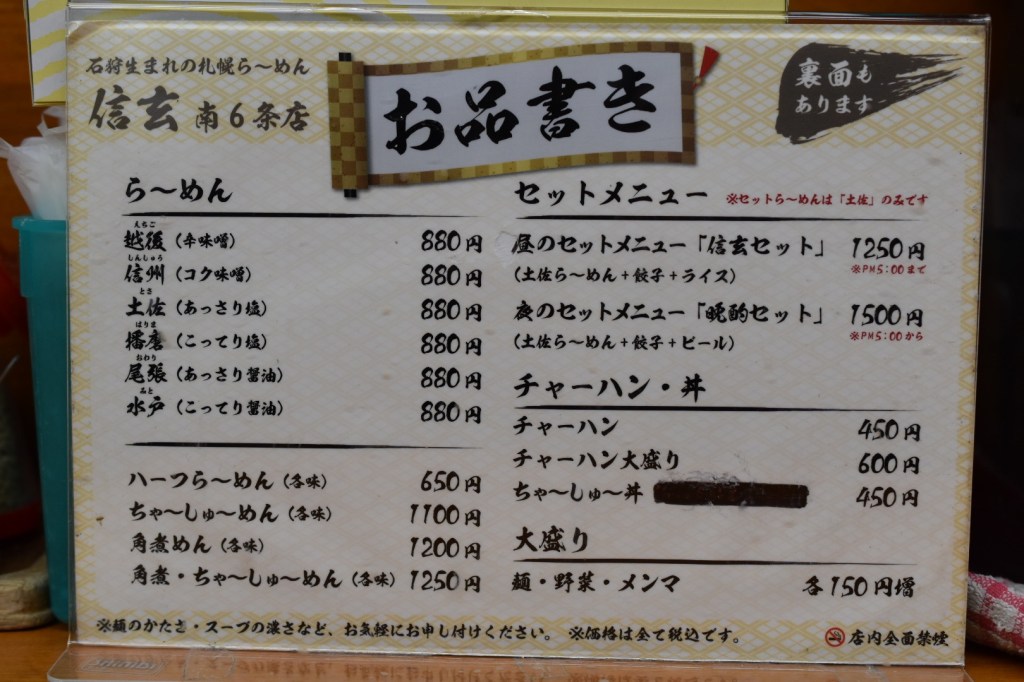 石狩生まれの札幌ら〜めん
信玄 南6条店
お品書き
裏面も
あります
ら〜めん
えちご
越後（辛味噌） 880円
しんしゅう
信州（コク味噌） 880円
とさ
土佐（あっさり塩） 880円
はりま
播磨（こってり塩） 880円
おわり
尾張（あっさり醤油） 880円
みと
水戸（こってり醤油） 880円
ハーフら〜めん（各味） 650円
ちゃ〜しゅ〜めん（各味） 1100円
角煮めん（各味） 1200円
角煮・ちゃ〜しゅ〜めん（各味） 1250円
セットメニュー ※セットら〜めんは「土佐」のみです
昼のセットメニュー「信玄セット」 1250円
（土佐ら〜めん＋餃子＋ライス） ※PM5:00まで
夜のセットメニュー「晩酌セット」 1500円
（土佐ら〜めん＋餃子＋ビール） ※PM5:00から
チャーハン・丼
チャーハン 450円
チャーハン大盛り 600円
ちゃ〜しゅ〜丼 450円
大盛り
麺・野菜・メンマ 各150円増
※麺のかたさ・スープの濃さなど、お気軽にお申し付けください。 ※価格は全て税込です。
店内全面禁煙